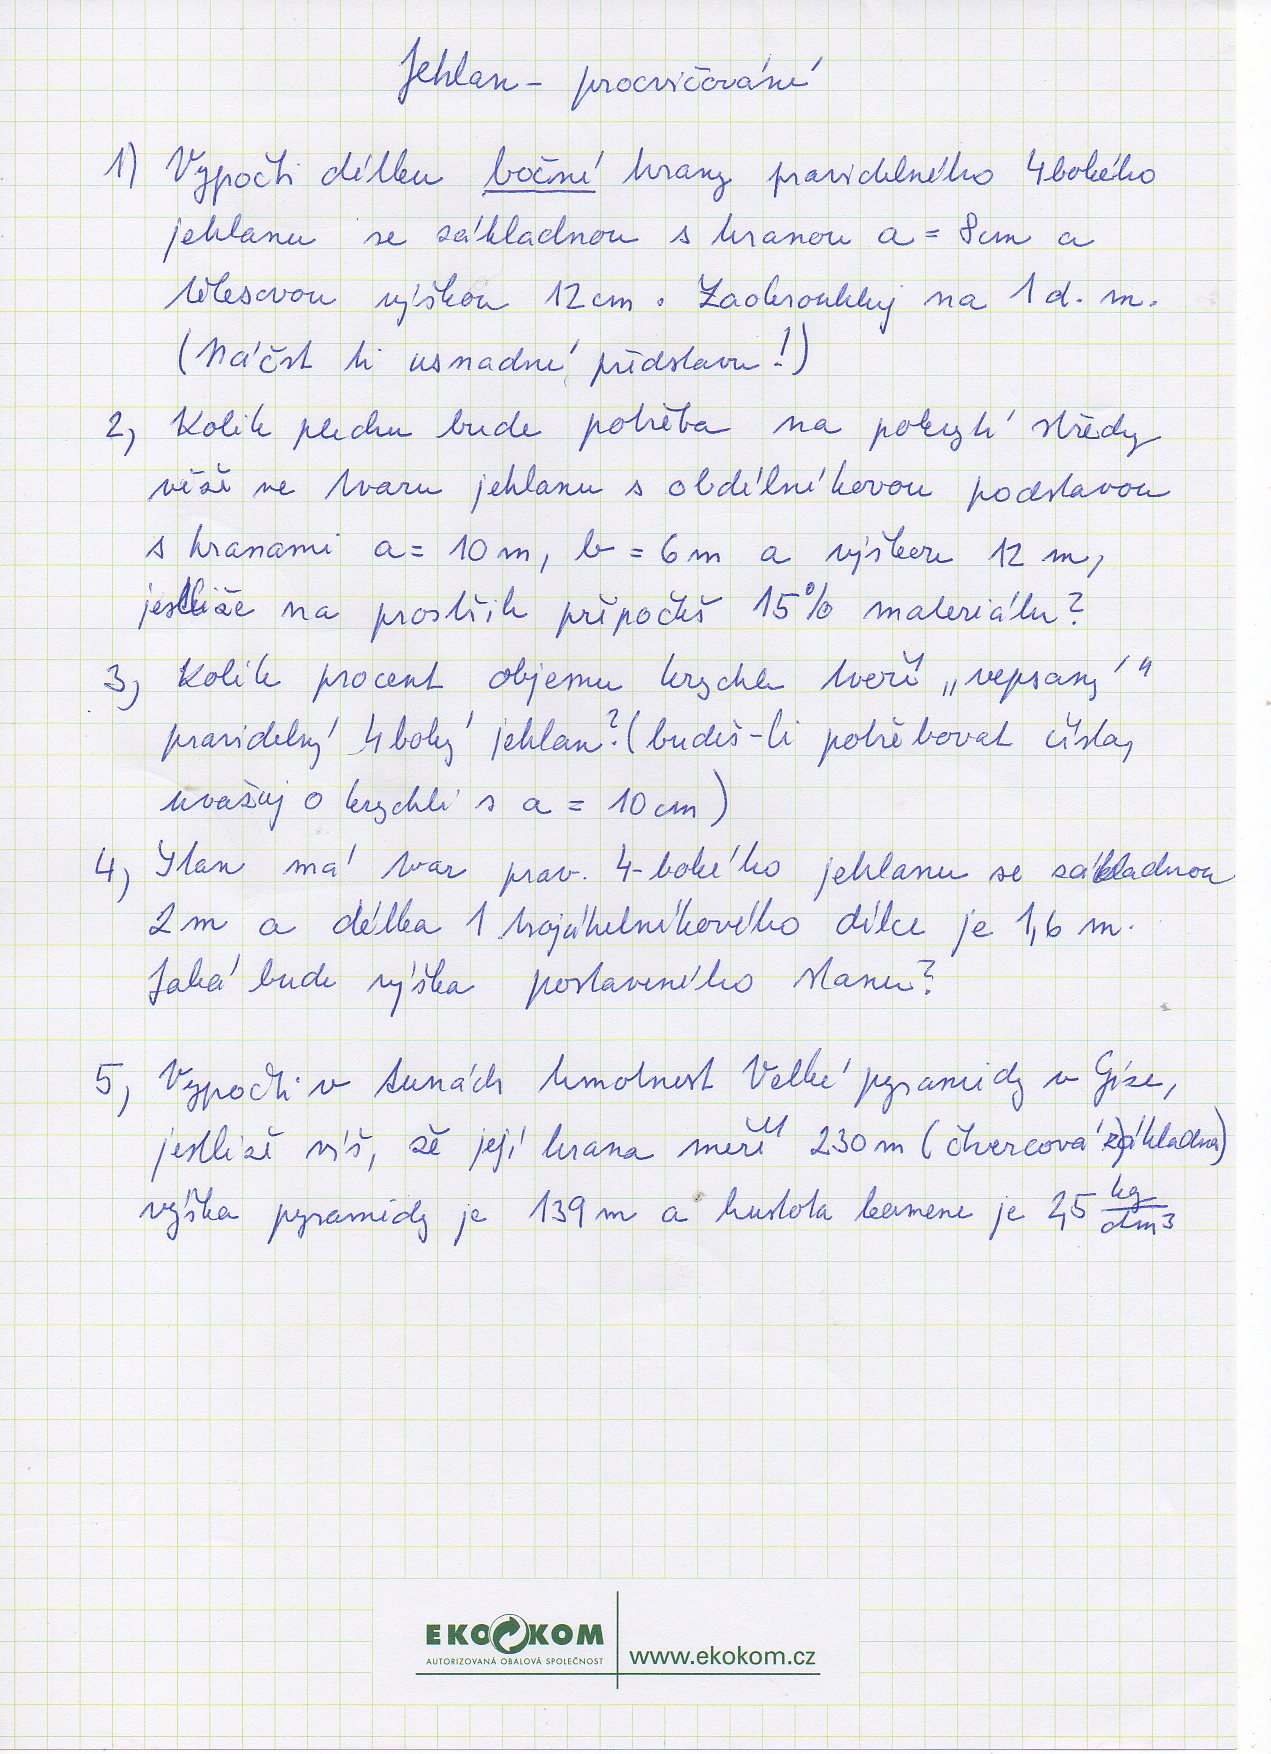 Jehlan - procvičování
1) Vypočti délku boční hrany pravidelného 4bokého
jehlanu se základnou s hranou a = 8cm a
tělesovou výškou 12cm. Zaokrouhluj na 1 d. m.
(Náčrt ti usnadní představu!)
2, Kolik plechu bude potřeba na pokrytí střechy
věže ve tvaru jehlanu s obdélníkovou podstavou
s hranami a = 10m, b = 6m a výškou 12 m,
jestliže na prostřih připočteš 15% materiálu?
3, Kolik procent objemu krychle tvoří „vepsaný“
pravidelný 4boký jehlan? (budeš-li potřebovat čísla,
uvažuj o krychli s a = 10cm)
4, Stan má tvar prav. 4-bokého jehlanu se základnou
2m a délka 1 trojúhelníkového dílce je 1,6 m.
Jaká bude výška postaveného stanu?
5, Vypočti v tunách hmotnost Velké pyramidy v Gíze,
jestliže víš, že její hrana měří 230m (čtvercová základna)
výška pyramidy je 139m a hustota kamene je 2,5 kg/dm³
EKO KOM
AUTORIZOVANÁ OBALOVÁ SPOLEČNOST
www.ekokom.cz